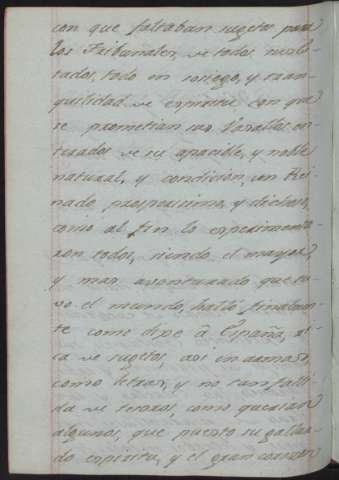 con que faltaban sugetos para
los Tribunales, de todos
tados, todo en sosiego, y tran-
quilidad de espiritu con que
se prometian sus Vasallos en-
terados de su apacible, y noble
natural, y condicion, un Rei-
nado prosperissimo, y dichoso,
como al fin lo experimenta-
ron todos, siendo el mayor,
y mas aventurado que tu-
vo el mundo, halló finalmen-
te come dixe â España, ri-
ca de sugetos, asi en armas,
como letras, y no tan falli-
da de tesoros, como querian
algunos, que puesto su gallar-
do espiritu, y el gran corazon